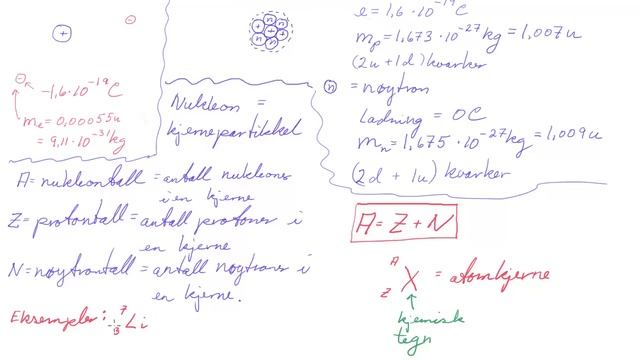 e = 1,6 · 10⁻¹⁹ C
mₚ = 1,673 · 10⁻²⁷ kg = 1,007u
(2u + 1d) kvarker
n = nøytron
Ladning = 0C
mₙ = 1,675 · 10⁻²⁷ kg = 1,009u
(2d + 1u) kvarker
-1,6·10⁻¹⁹ C
mₑ = 0,00055u
= 9,11·10⁻³¹ kg
Nukleon =
kjernepartikkel
A = nukleontall = antall nukleons
i en kjerne
Z = protontall = antall protons i
en kjerne
N = nøytrontall = antall nøytrons i
en kjerne.
Eksempler: ⁷₃Li
A = Z + N
A
Z X = atomkjerne
kjemisk
tegn